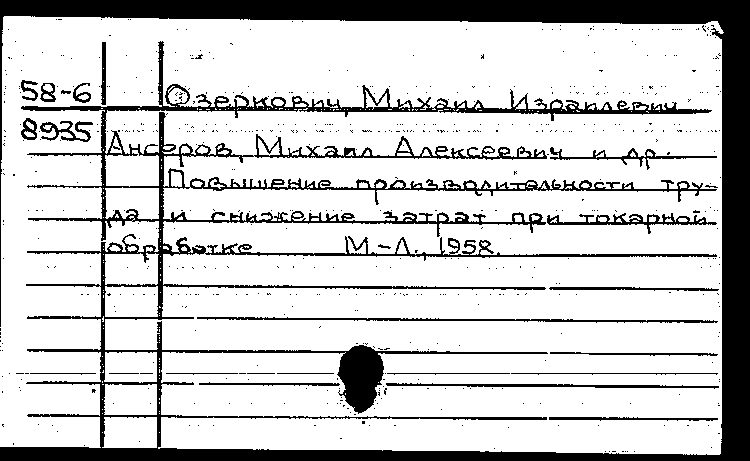 58-6 Озеркович, Михаил Израилевич
8935 Ансеров, Михаил Алексеевич и др.
Повышение производительности тру-
да и снижение затрат при токарной
обработке. М.-Л., 1958.